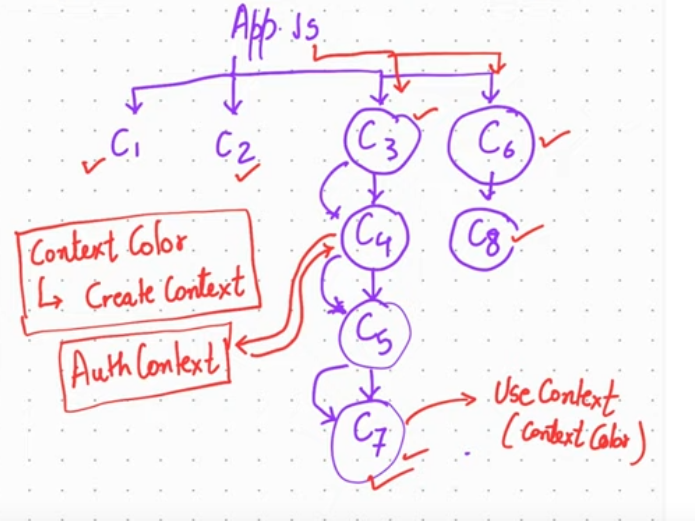 App.Js
C1
C2
C3
C6
C4
C8
Context Color
↳ Create Context
Auth Context
C5
C7
Use Context
(Context Color)